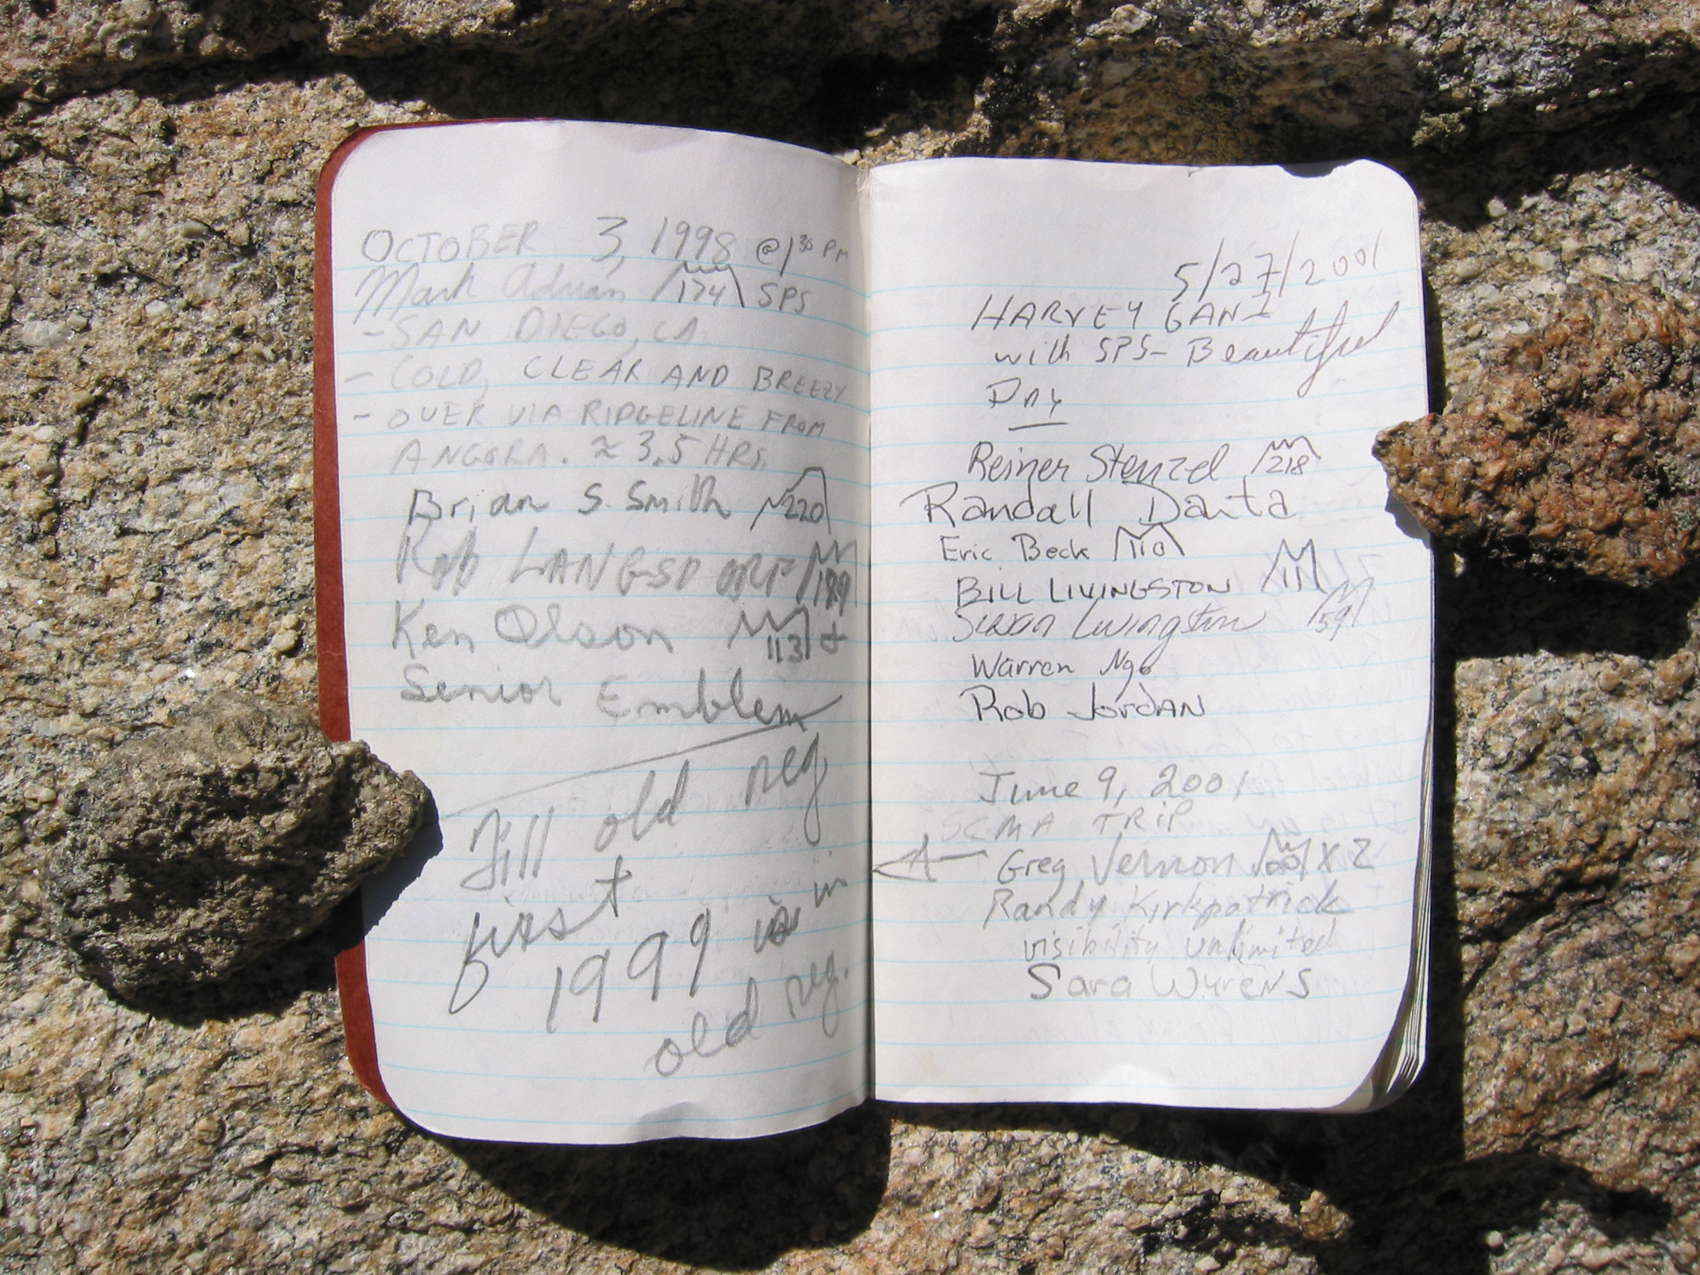 OCTOBER 3, 1998 @ 1 30 PM
Mark Adrian 174 SPS
- SAN DIEGO, CA
- COLD, CLEAR AND BREEZY
- OVER VIA RIDGELINE FROM
ANGORA. ≈ 3.5 HRS.
Brian S. Smith 220
Rob LANGSDORF 199
Ken Olson 113 +
Senior Emblem
Fill old reg
first
1999 is in
old reg.
5/27/2001
HARVEY GANZ
with SPS - Beautiful
Day
Reiner Stenzel 218
Randall Danta
Eric Beck 110
BILL LIVINGSTON 111
Susan Livingston 59
Warren Ngo
Rob Jordan
June 9, 2001
SCMA TRIP
Greg Vernon X 2
Randy Kirkpatrick
visibility unlimited
Sara Wyrens